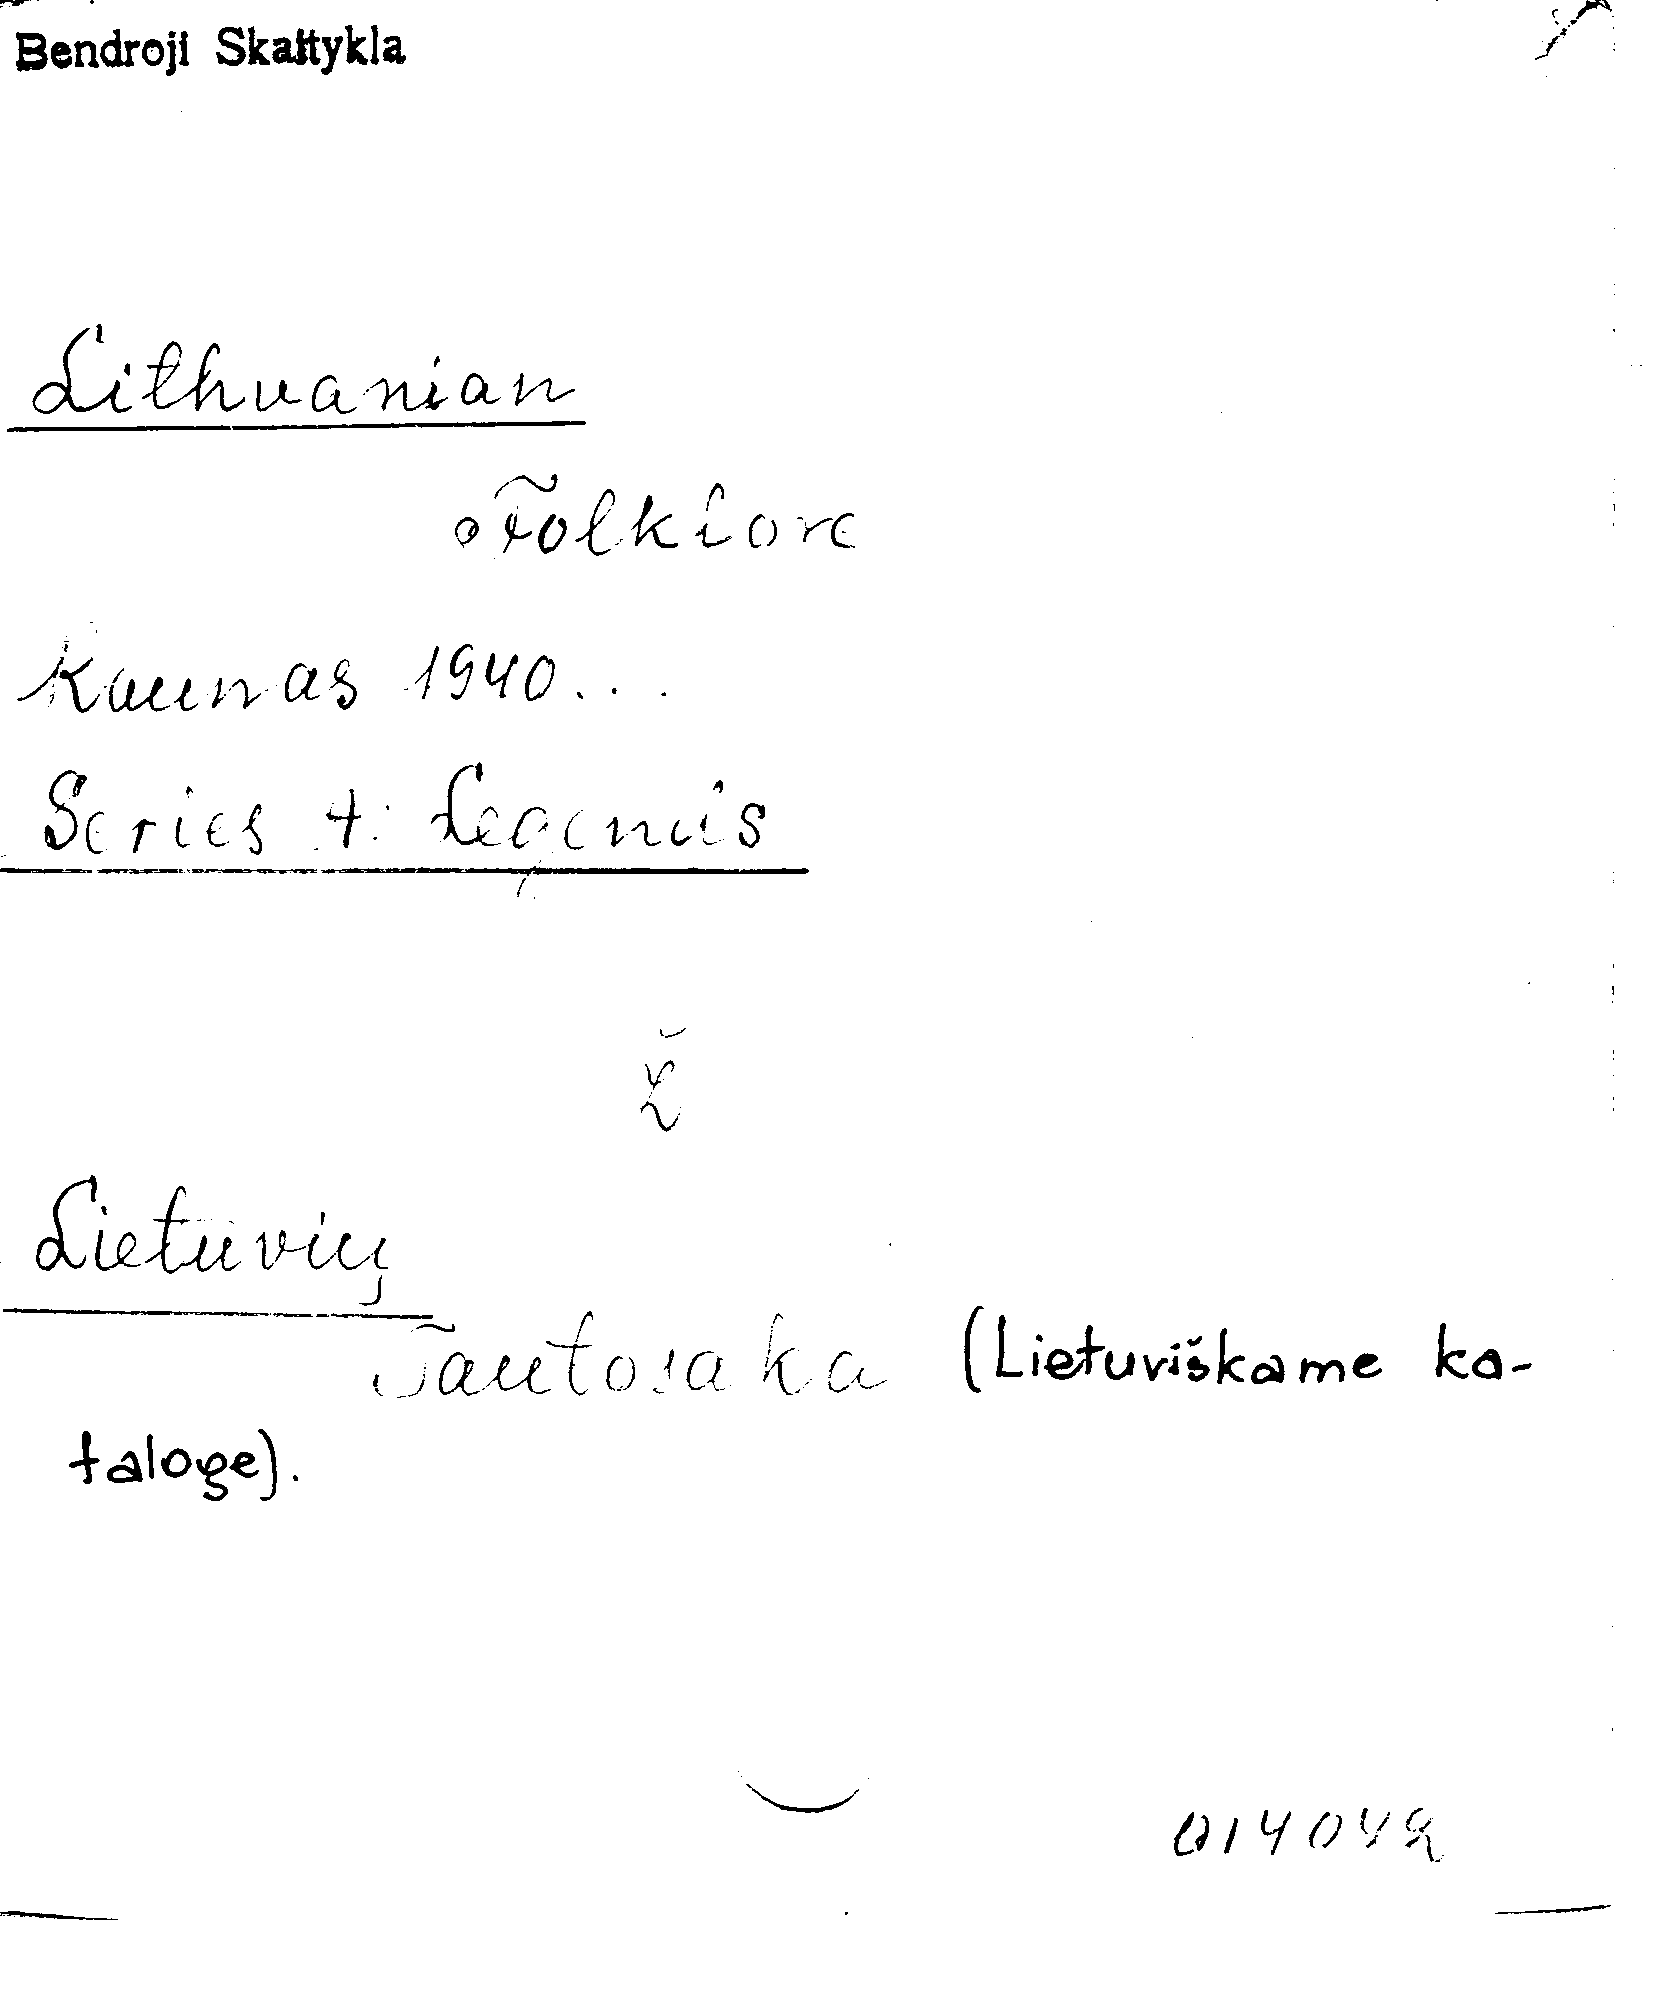 Bendroji Skaitykla
Lithuanian
Folklore
Kaunas 1940...
Series 4: Legends
Ž
Lietuvių
Tautosaka (Lietuviškame ka-
taloge).